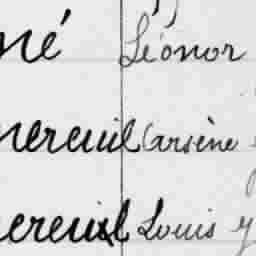 né Léonor
nereuil (arsène
ereuil Louis y